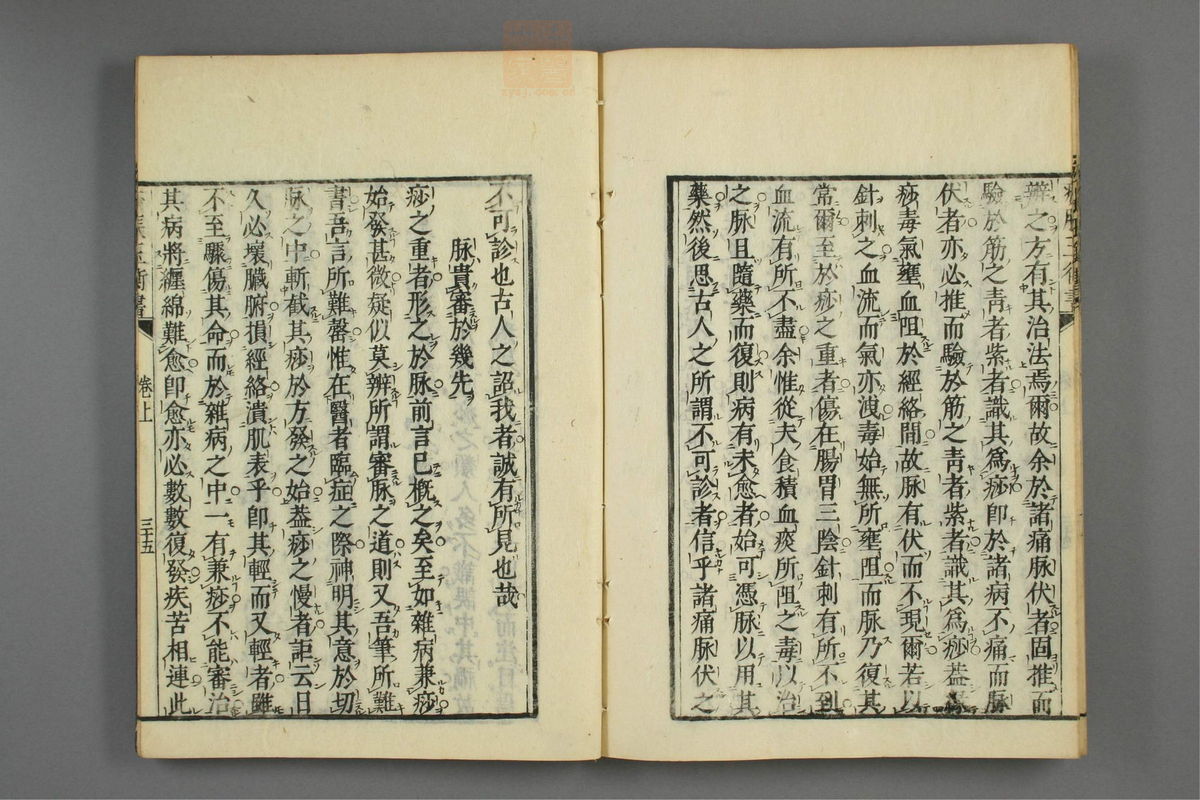 辨之方有其治法焉爾故余於諸痛脉伏者固推而
驗於筋之青者紫者識其爲痧卽於諸病不痛而脉
伏者亦必推而驗於筋之青者紫者識其爲痧蓋
痧毒氣壅血阻於經絡間故脉有伏而不現爾若以
針刺之血流而氣亦洩毒始無所壅阻而脉乃復其
常爾至於痧之重者傷在腸胃三陰針刺有所不到
血流有所不盡余惟從夫食積血痰所阻之毒以治
之脉且隨藥而復則病有未愈者始可憑脉以用其
藥然後思古人之所謂不可診者信乎諸痛脉伏之
不可診也古人之詔我者誠有所見也哉
脉貴審於幾先
痧之重者形之於脉前言已概之矣至如雜病兼痧
始發甚微疑似莫辨所謂審脉之道則又吾筆所難
書吾言所難罄惟在醫者臨症之際神明其意於切
脉之中斬截其痧於方發之始葢痧之慢者詎云日
久必壞臟腑損經絡潰肌表乎卽其輕而又輕者雖
不至驟傷其命而於雜病之中一有兼痧不能審治
其病將纏綿難愈卽愈亦必數數復發疾苦相連此
卷上
三十五